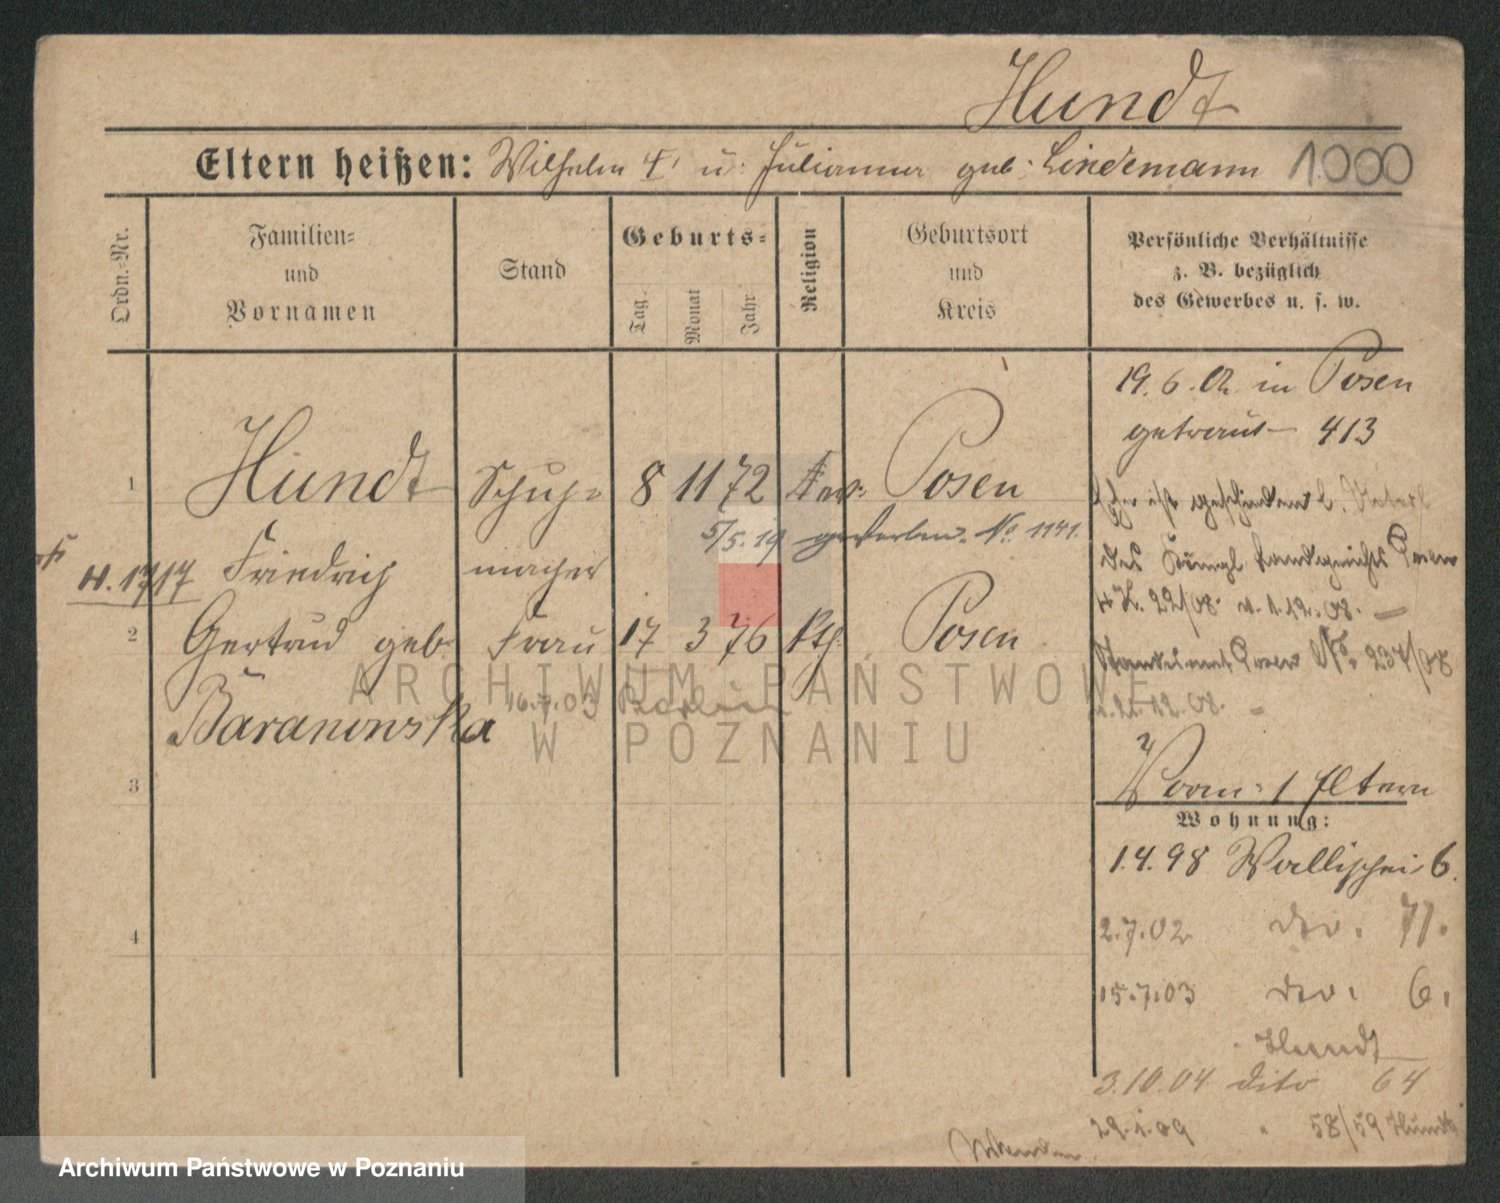 Hundt
Eltern heißen: Wilhelm † u. Julianna geb. Lindemann 1000
Ordn.-Nr.
Familien-
und
Vornamen
Stand
Geburts-
Tag.
Monat
Jahr
Religion
Geburtsort
und
Kreis
Persönliche Verhältnisse
z. B. bezüglich
des Gewerbes u. s. w.
19.6.02. in Posen
getraut 413
1 Hundt Schuh- 8 11 72 Ev. Posen
5/5.19 gestorben. No. 1141.
H. 1717 Friedrich macher
2 Gertrud geb. Frau 17 3 76 Kth. Posen
Baranowska 16.7.03
Ehe ist geschieden d. Urteil
des Königl Landgerichts Posen
4 R. 22/08. v. 1.12.08. —
Standesamt Posen No. 237/08
12.08. —
3
Vorm: 1 Eltern
Wohnung:
1.4.98 Wallischei 6.
4
2.7.02 do. 71.
15.7.03 do. 6.
Hundt
3.10.04 dito 64
29.1.09 " 58/59 Hundt
ARCHIWUM PAŃSTWOWE
W POZNANIU
Archiwum Państwowe w Poznaniu